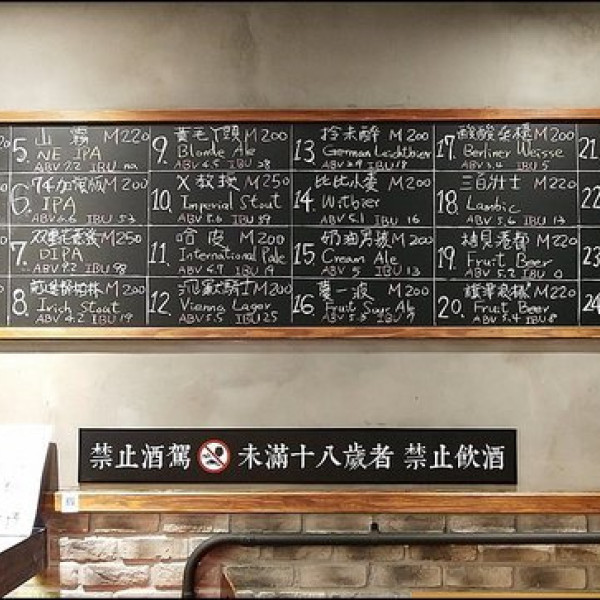 5. 山霧 M220
NE IPA
ABV 7.2 IBU na
9. 黃毛丫頭 M200
Blonde Ale
ABV 4.5 IBU 28
13. 拎未醉 M200
German Leichtbier
ABV 2.9 IBU 18
17. 酸酸 M200
Berliner Weisse
IBU 5
21.
6. 加 M200
IPA
ABV 6.6 IBU 53
10. X教授 M250
Imperial Stout
ABV 8.6 IBU 39
14. 比比小麥 M200
Witbier
ABV 5.1 IBU 16
18. 三百壯士 M220
Lambic
ABV 5.6 IBU 13
22
7. 雙 M250
DIPA
ABV 9.2 IBU 98
11. 哈皮 M200
International Pale
ABV 4.7 IBU 19
15. 奶油男孩 M200
Cream Ale
ABV 5 IBU 13
19. M220
Fruit Beer
ABV 5.2 IBU 0
23
8. 柏林 M200
Irish Stout
ABV 4.2 IBU 19
12. 騎士 M200
Vienna Lager
ABV 5.5 IBU 25
16. 夢一波 M200
Fruit Sour Ale
ABV 5.3 IBU 7
20. M220
Fruit Beer
ABV 5.4 IBU 8
24
禁止酒駕 未滿十八歲者 禁止飲酒